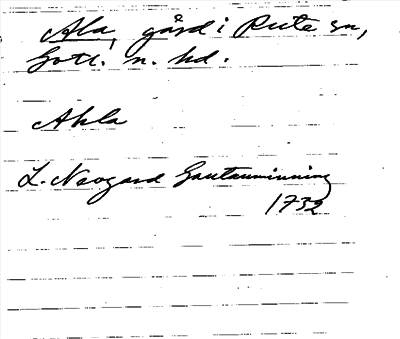 Ala, gård i Rute sn,
Gotl. n. hd.
Ahla
L. Neogard Gautauminning
1732